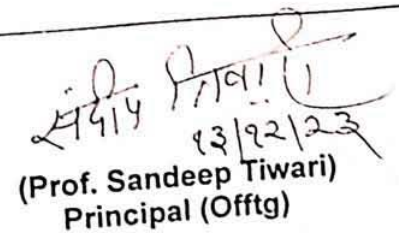 संदीप तिवारी
१३/१२/२३
(Prof. Sandeep Tiwari)
Principal (Offtg)